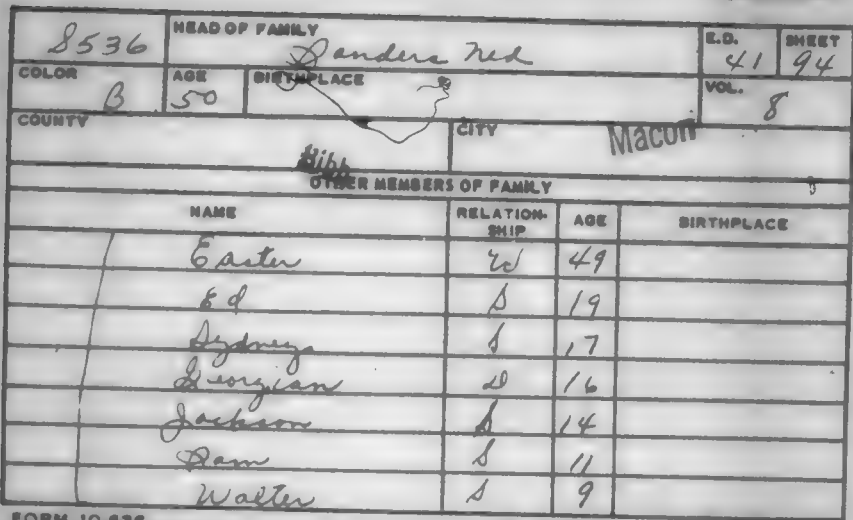 HEAD OF FAMILY E.D. SHEET
S536 Sanders Ned 41 94
COLOR AGE BIRTHPLACE VOL.
B 50 Ga 8
COUNTY CITY
Bibb Macon
OTHER MEMBERS OF FAMILY
NAME RELATION-SHIP AGE BIRTHPLACE
Easter W 49
Ed S 19
Sydney S 17
Georgian D 16
Jackson S 14
Sam S 11
Walter S 9
FORM 10-636